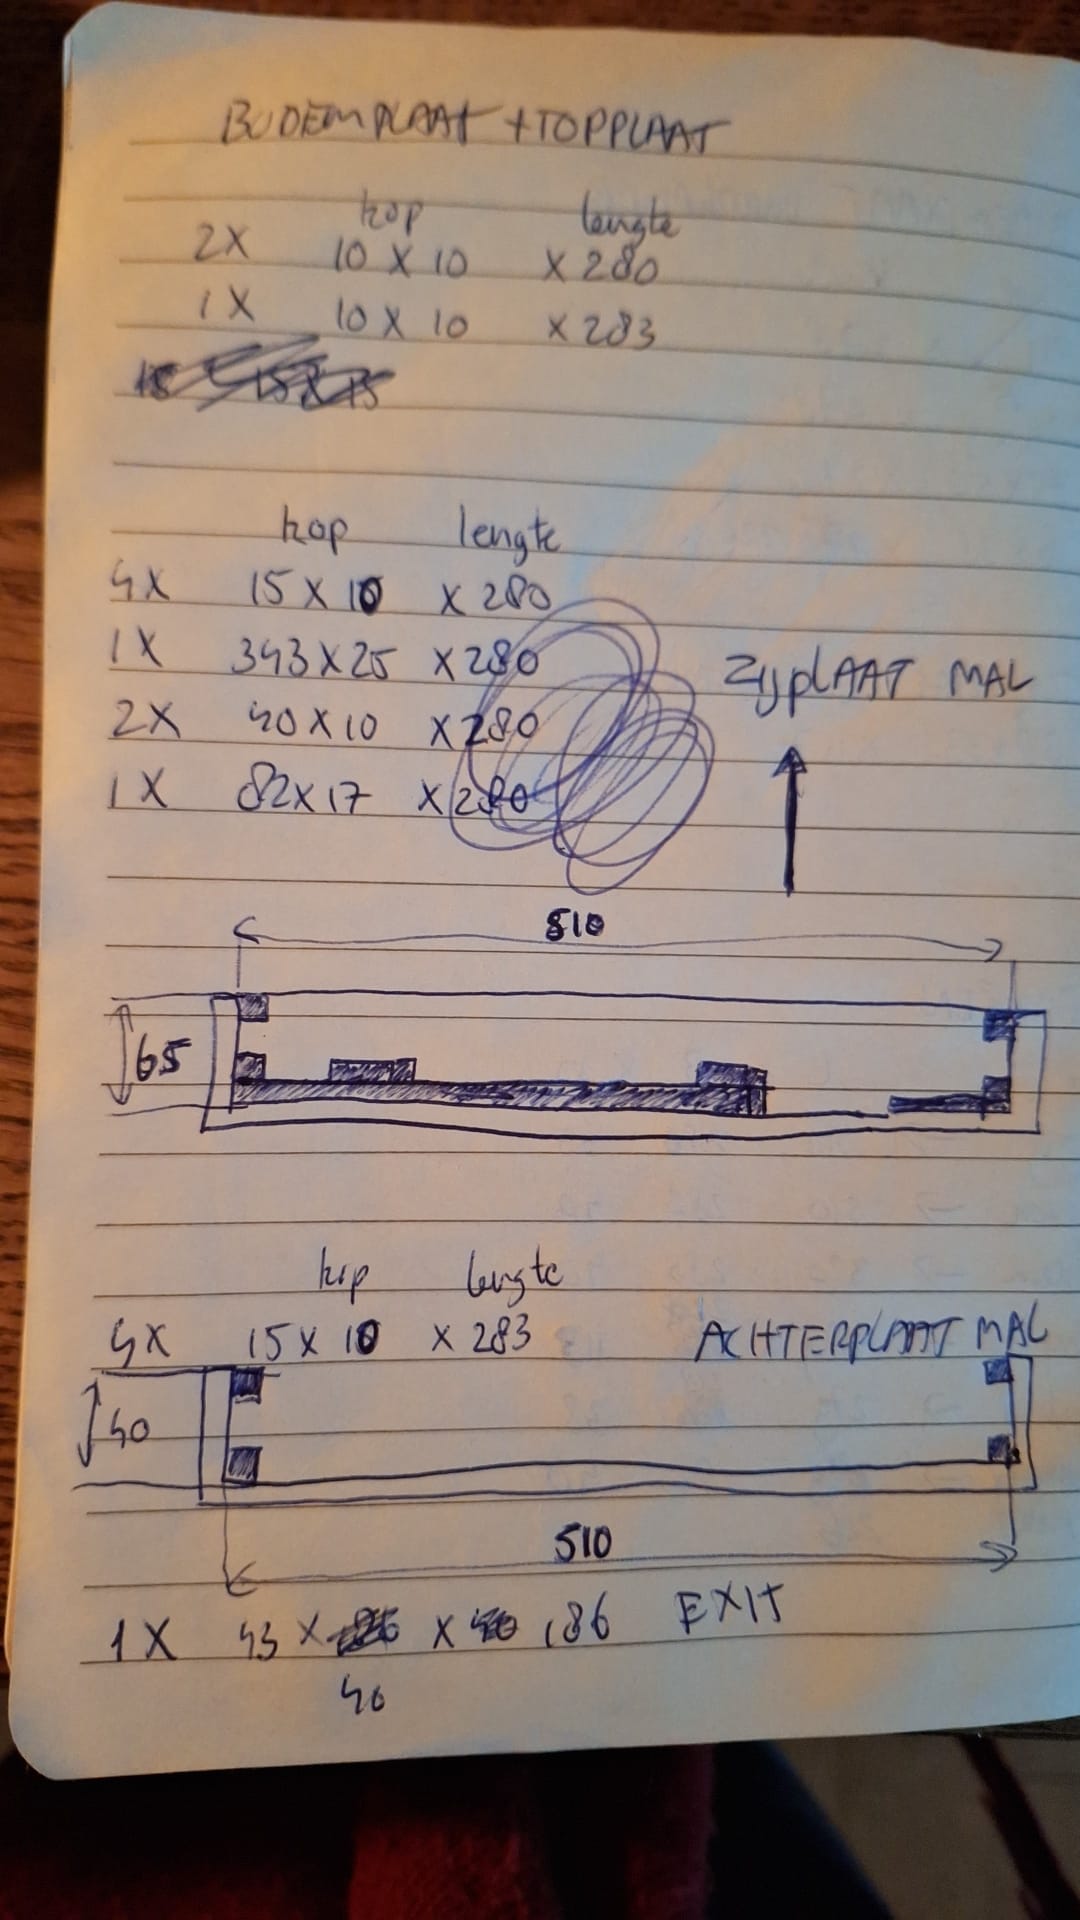 BODEMPLAAT + TOPPLAAT
kop lengte
2X 10 X 10 X 280
1X 10 X 10 X 283
15 15X15
kop lengte
4X 15 X 10 X 280
1X 343 X 25 X 280
2X 40 X 10 X 280
1X 82 X 17 X 280
ZijPLAAT MAL
510
65
kop lengte
4X 15 X 10 X 283 ACHTERPLAAT MAL
40
510
1X 43 X X 186 EXIT
40